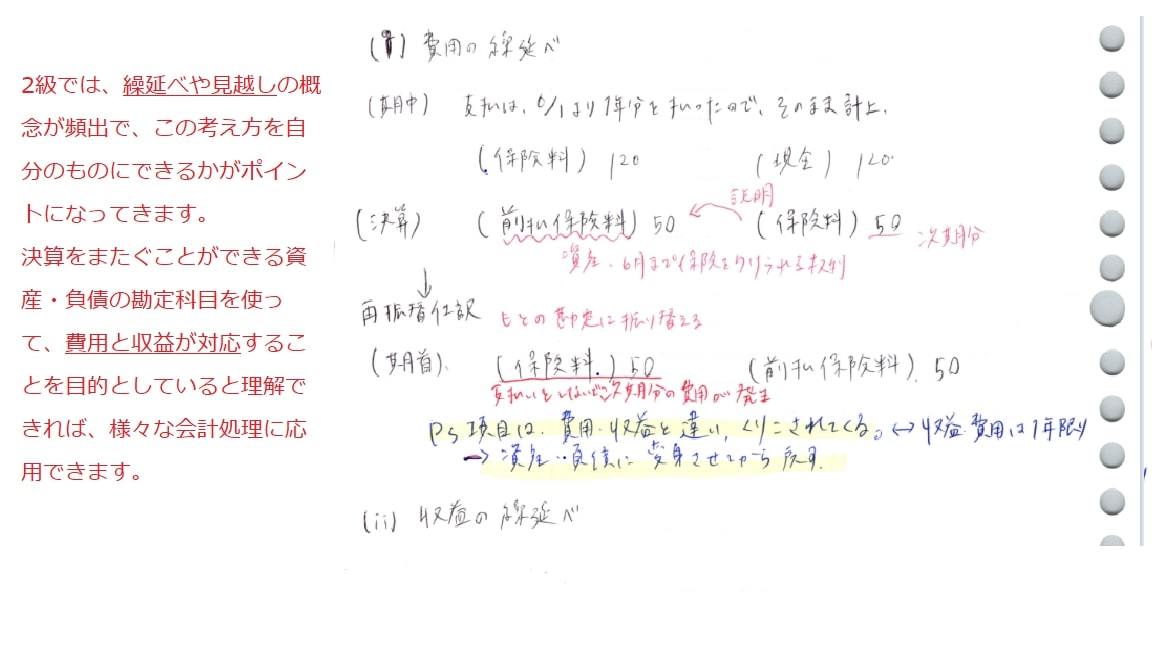 2級では、繰延べや見越しの概
念が頻出で、この考え方を自
分のものにできるかがポイン
トになってきます。
決算をまたぐことができる資
産・負債の勘定科目を使っ
て、費用と収益が対応するこ
とを目的としていると理解で
きれば、様々な会計処理に応
用できます。
(i) 費用の繰延べ
(期中) 支払は、6/1より1年分を払ったので、そのまま計上。
(保険料) 120 (現金) 120
説明
(決算) (前払保険料) 50 (保険料) 50 次期分
資産・6月まで保険をかけられる権利
↓
再振替仕訳 もとの勘定に振り替える
(期首). (保険料.) 50 (前払保険料). 50
支払いをしないで次期分の費用が発生
項目は、費用・収益と違い、くりこされてくる。↔ 収益・費用は1年限り
→ 資産・負債に変身させてから
(ii) 収益の繰延べ